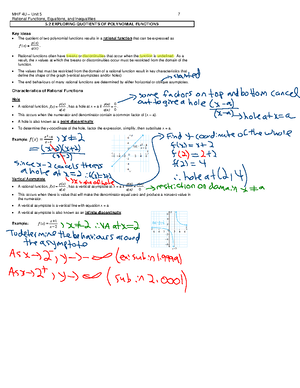 MHF 4U – Unit 5
7
Rational Functions, Equations, and Inequalities
5.2 EXPLORING QUOTIENTS OF POLYNOMIAL FUNCTIONS
Key Ideas
The quotient of two polynomial functions results in a rational function that can be expressed as
Rational functions often have
that occur when the function is undefined. As a
result, the x values at which the breaks or discontinuities occur must be restricted from the domain of the
function.
The values that must be restricted from the domain of a rational function result in key characteristics that
define the shape of the graph (vertical asymptotes and/or holes)
The end behaviours of many rational functions are determined by either horizontal or oblique asymptotes.
some factors on top and bottom cancel
out to give a hole (x-a)
(x-a)
hole at x=a
Characteristics of Rational Functions
Hole
A rational function,
has a hole at x = a if
This occurs when the numerator and denominator contain a common factor of (x – a).
A hole is also known as a point discontinuity
To determine the y-coordinate of the hole, factor the expression, simplify, then substitute x = a.
Example:
, x≠2
Find y coordinate of the hole
f(x) = x+2
f(2) = 2+2
f(2) = 4
∴ hole at (2,4)
since x-2 cancels there's
a hole at x=2
Vertical Asymptote
A rational function,
has a vertical asymptote at x = a if
restriction on domain x≠a
This occurs when there is value that will make the denominator equal zero and produce a nonzero value in
the numerator
A vertical asymptote is a vertical line with equation x = a
A vertical asymptote is also known as an infinite discontinuity
Example:
, x≠2 ∴VA at x=2
To determine the behaviours around
the asymptote
As x→2⁻, y→-∞ (ex: sub in 1.9999)
As x→2⁺, y→∞ (sub in 2.0001)